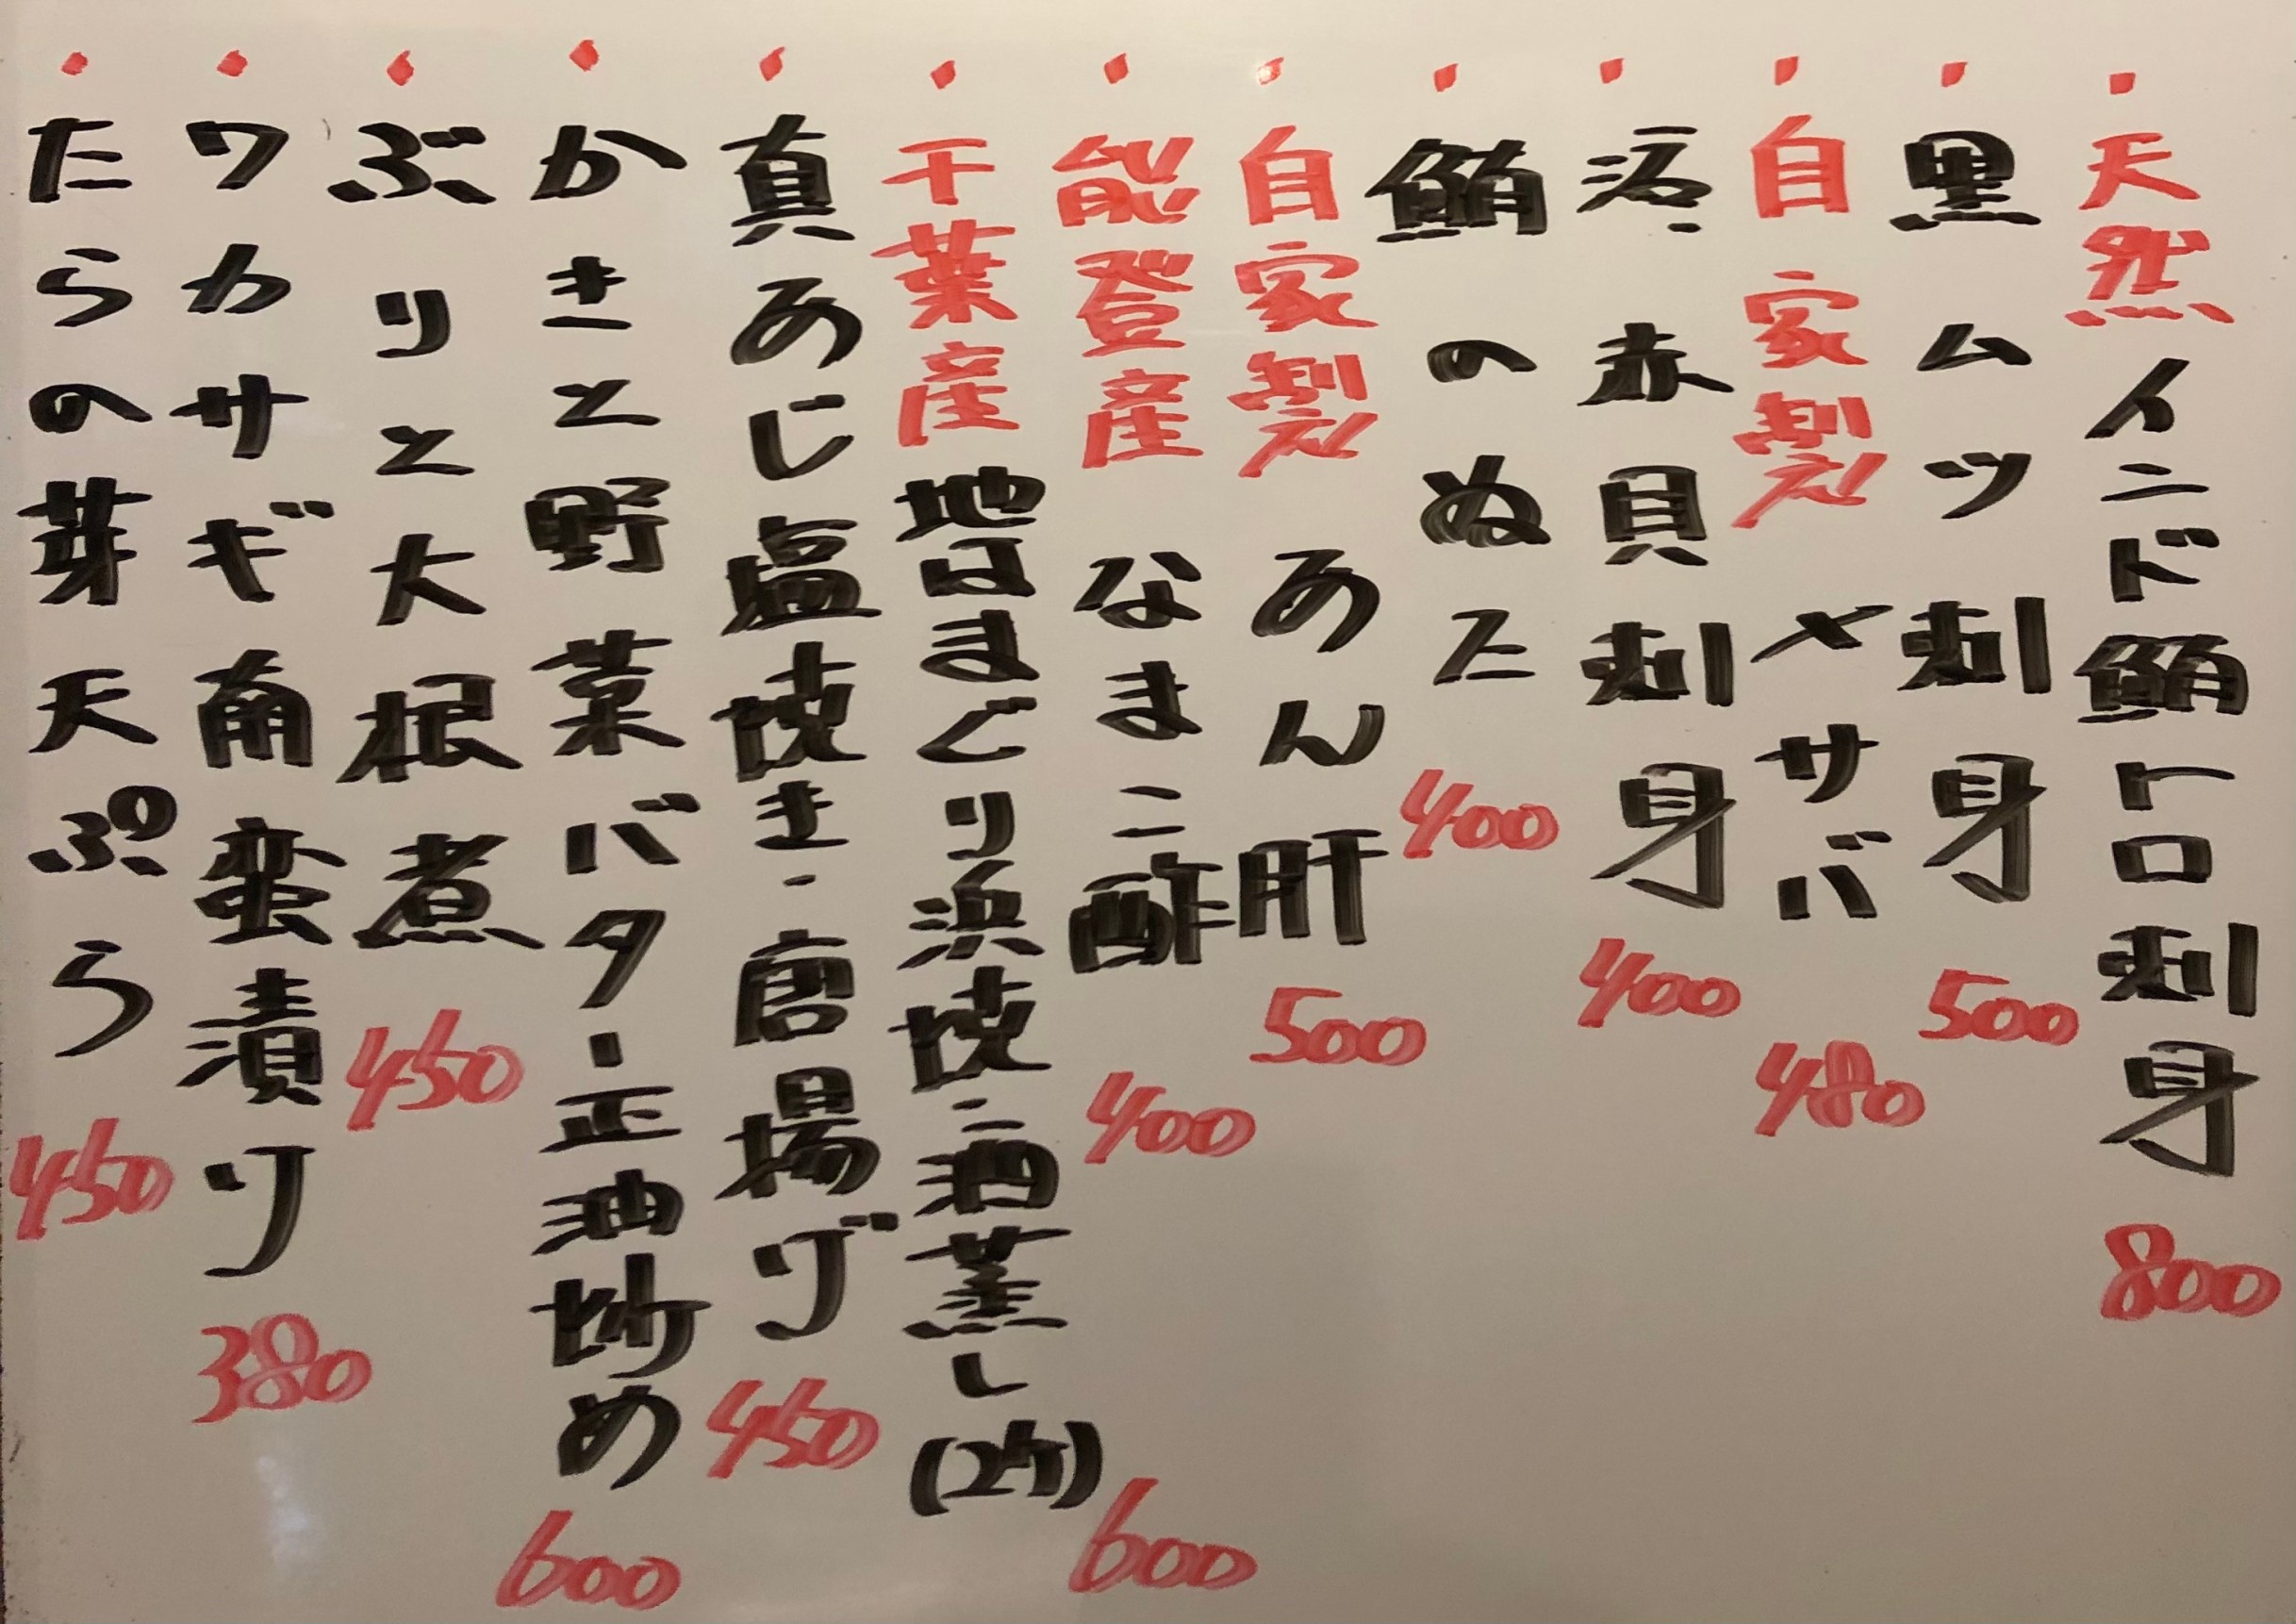 ・天然インド鮪トロ刺身 800
・黒ムツ刺身 500
・自家製〆サバ 480
・活赤貝刺身 400
・鮪のぬた 400
・自家製あん肝 500
・能登産なまこ酢 400
・千葉産地はまぐり浜焼・酒蒸し(2ケ) 600
・真あじ塩焼き・唐揚げ 450
・かきと野菜バター正油炒め 600
・ぶりと大根煮 450
・ワカサギ南蛮漬け 380
・たらの芽天ぷら 450